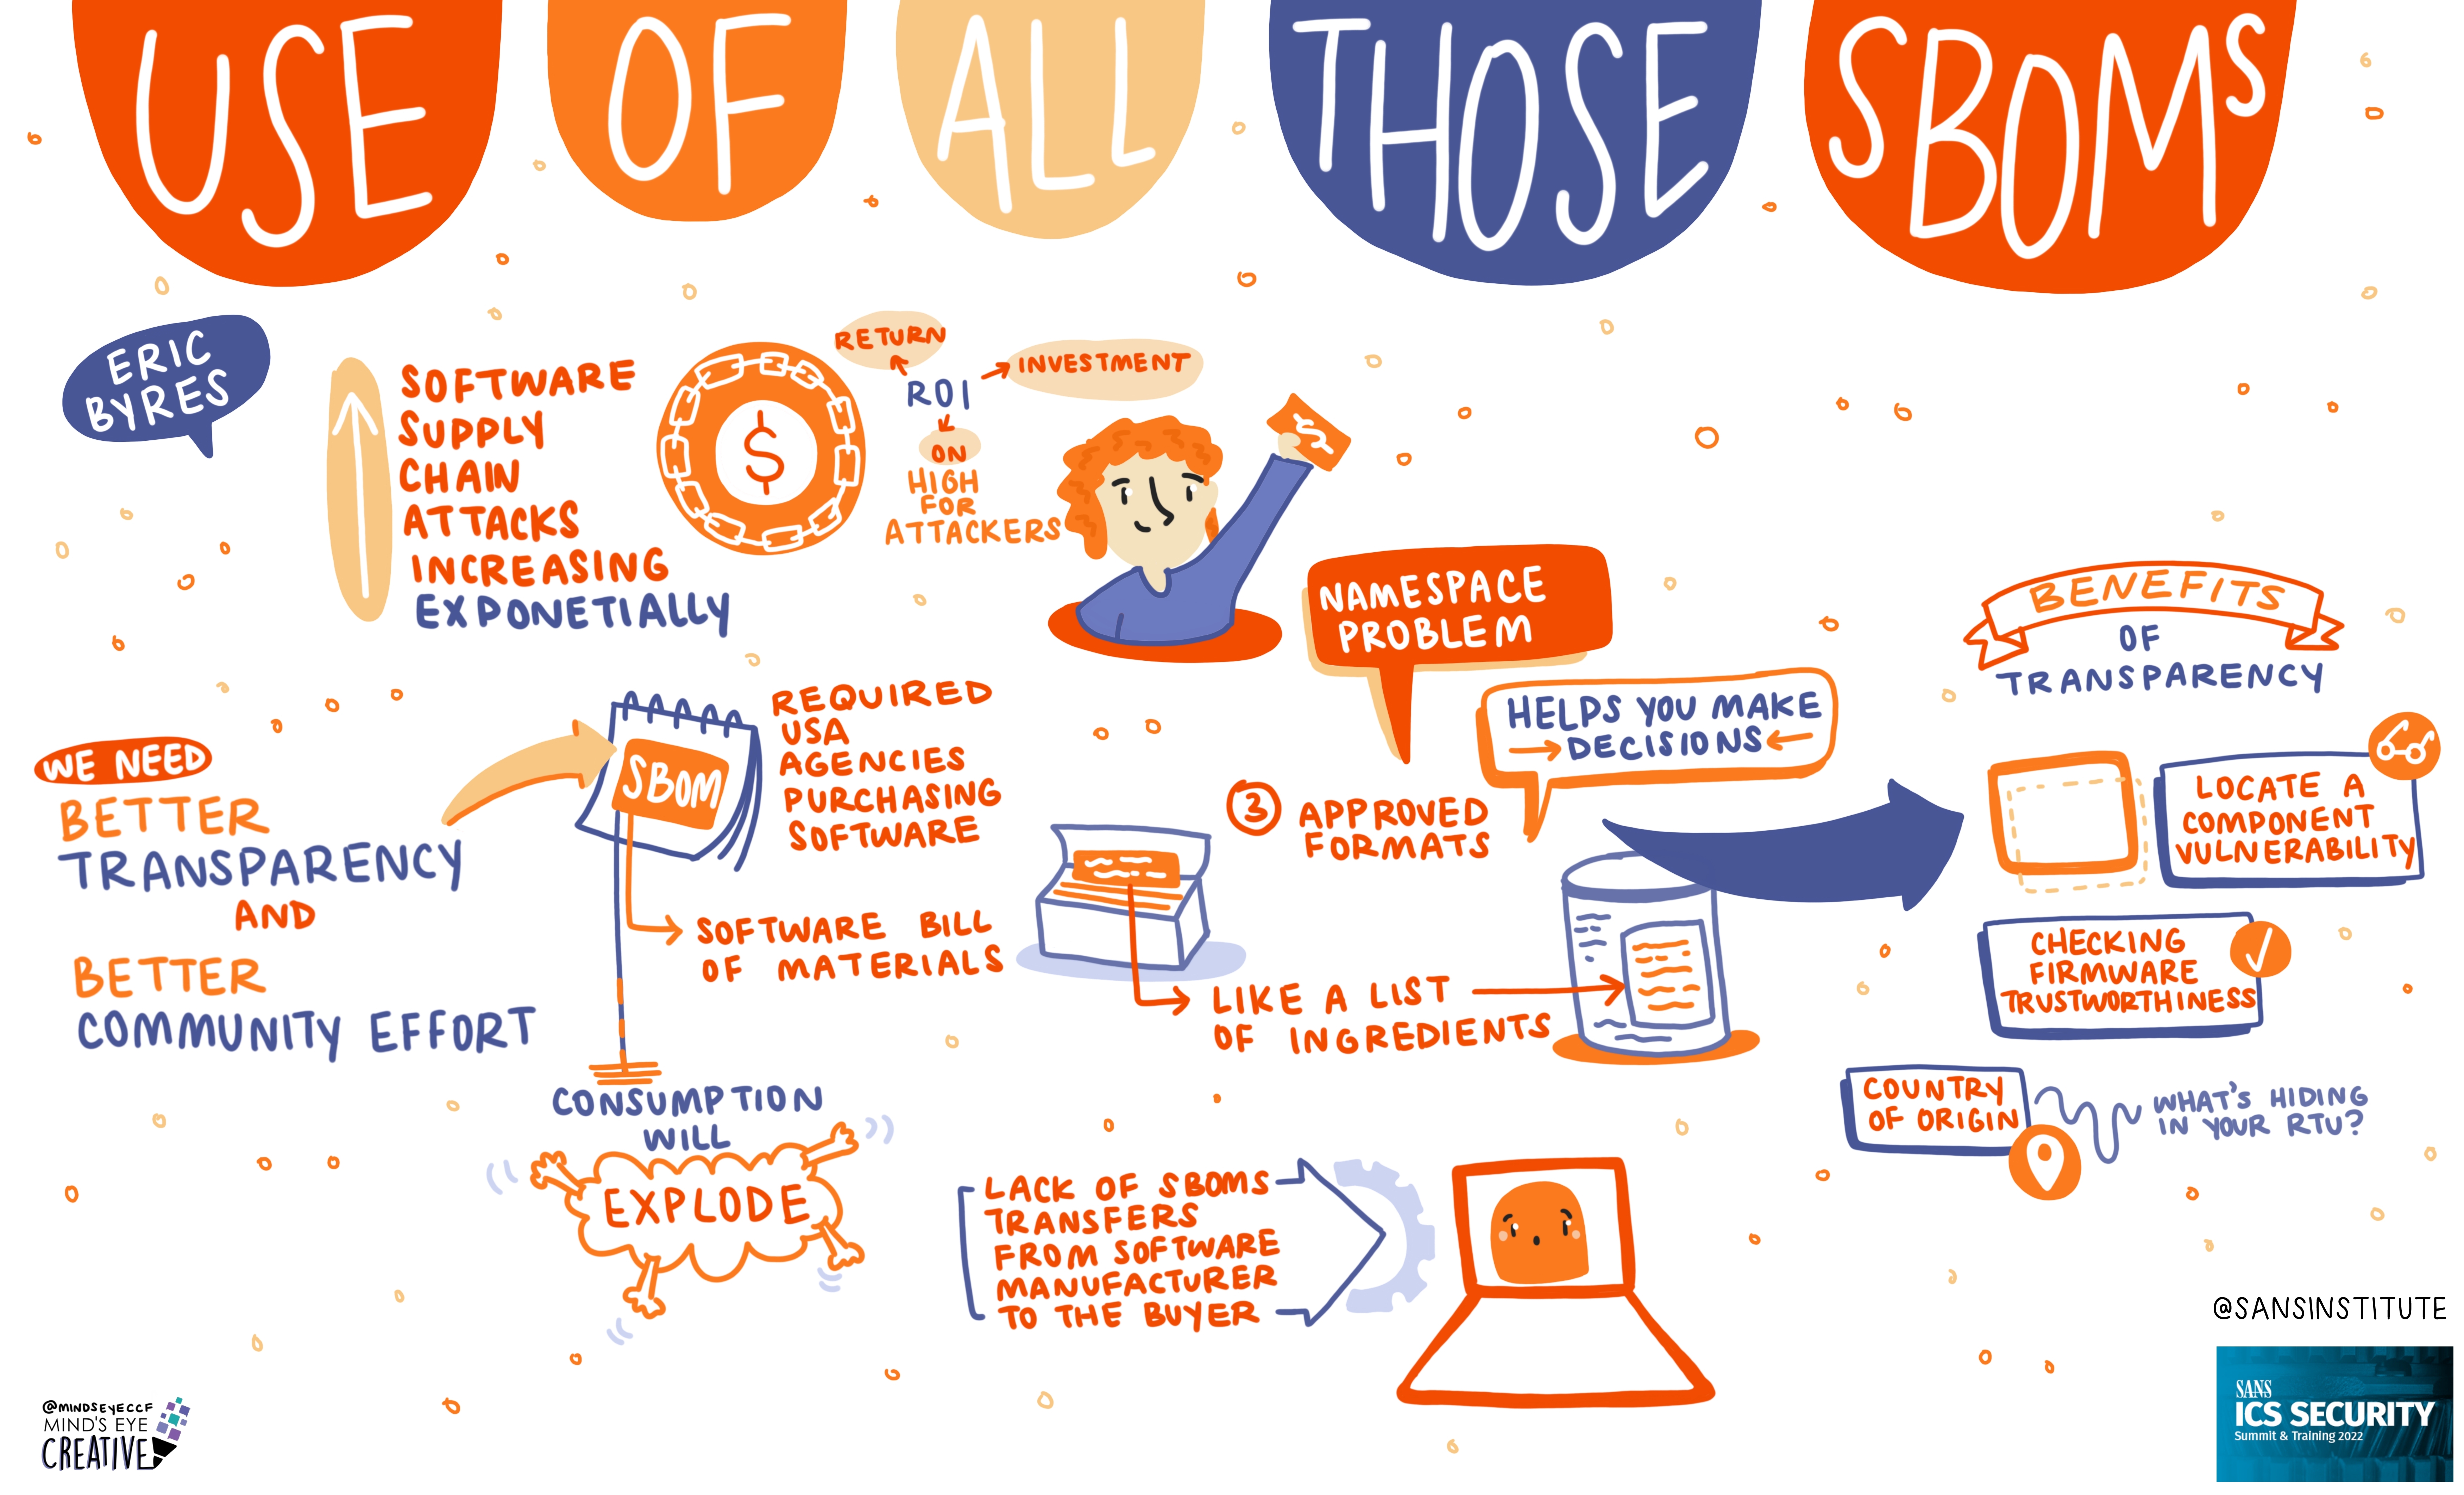 USE OF ALL THOSE SBOMs
ERIC
BYRES
SOFTWARE
SUPPLY
CHAIN
ATTACKS
INCREASING
EXPONETIALLY
$
RETURN
INVESTMENT
ROI
ON
HIGH
FOR
ATTACKERS
$
WE NEED
BETTER
TRANSPARENCY
AND
BETTER
COMMUNITY EFFORT
SBOM
REQUIRED
USA
AGENCIES
PURCHASING
SOFTWARE
SOFTWARE BILL
OF MATERIALS
CONSUMPTION
WILL
EXPLODE
NAMESPACE
PROBLEM
HELPS YOU MAKE
DECISIONS
3 APPROVED
FORMATS
LIKE A LIST
OF INGREDIENTS
LACK OF SBOMS
TRANSFERS
FROM SOFTWARE
MANUFACTURER
TO THE BUYER
BENEFITS
OF
TRANSPARENCY
LOCATE A
COMPONENT
VULNERABILITY
CHECKING
FIRMWARE
TRUSTWORTHINESS
COUNTRY
OF ORIGIN
WHAT'S HIDING
IN YOUR RTU?
@MINDSEYECCF
MIND'S EYE
CREATIVE
@SANSINSTITUTE
SANS
ICS SECURITY
Summit & Training 2022